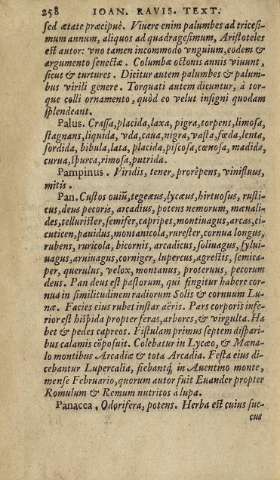 258 IOAN. RAVIS. TEXT.
sed ætate præcipuè. Viuere enim palumbes ad tricesi-
mum annum, aliquos ad quadragesimum, Aristoteles
est autor: vno tamen incommodo vnguium, eodem &
argumento senectæ. Columbæ octonis annis viuunt,
sicut & turtures. Dicitur autem palumbes & palum-
bus virili genere. Torquati autem dicuntur, à tor-
que colli ornamento, quòd eo velut insigni quodam
splendeant.
Palus. Crassa, placida, laxa, pigra, torpens, limosa,
stagnans, liquida, vda, caua, nigra, vasta, fœda, lenta,
sordida, bibula, lata, placida, piscosa, cœnosa, madida,
curua, spurca, rimosa, putrida.
Pampinus. Viridis, tener, prorepens, vinistuus,
mitis.
Pan. Custos ouiũ, tegeæus, lycæus, hirtuosus, rusti-
cus, deus pecoris, arcadius, potens nemorum, manali-
des, tellurister, semifer, capripes, montiuagus, arcas, ci-
cuticen, pauidus, montanicola, rurester, cornua longus,
rubens, ruricola, bicornis, arcadicus, soliuagus, syluí-
uagus, aruiuagus, corniger, lupercus, agrestis, semica-
per, querulus, velox, montanus, proteruus, pecorum
deus. Pan deus est pastorum, qui fingitur habere cor-
nua in similitudinem radiorum Solis & cornuum Lu-
næ. Facies eius rubet instar aëris. Pars corporis infe-
rior est hispida propter feras, arbores, & virgulta. Ha
bet & pedes capreos. Fistulam primus septem dispari-
bus calamis cõposuit. Colebatur in Lycæo, & Mæna-
lo montibus Arcadiæ & tota Arcadia. Festa eius di-
cebantur Lupercalia, fiebantq; in Auentino monte,
mense Februario, quorum autor fuit Euander propter
Romulum & Remum nutritos à lupa.
Panacea, Odorifera, potens. Herba est cuius suc-
cus